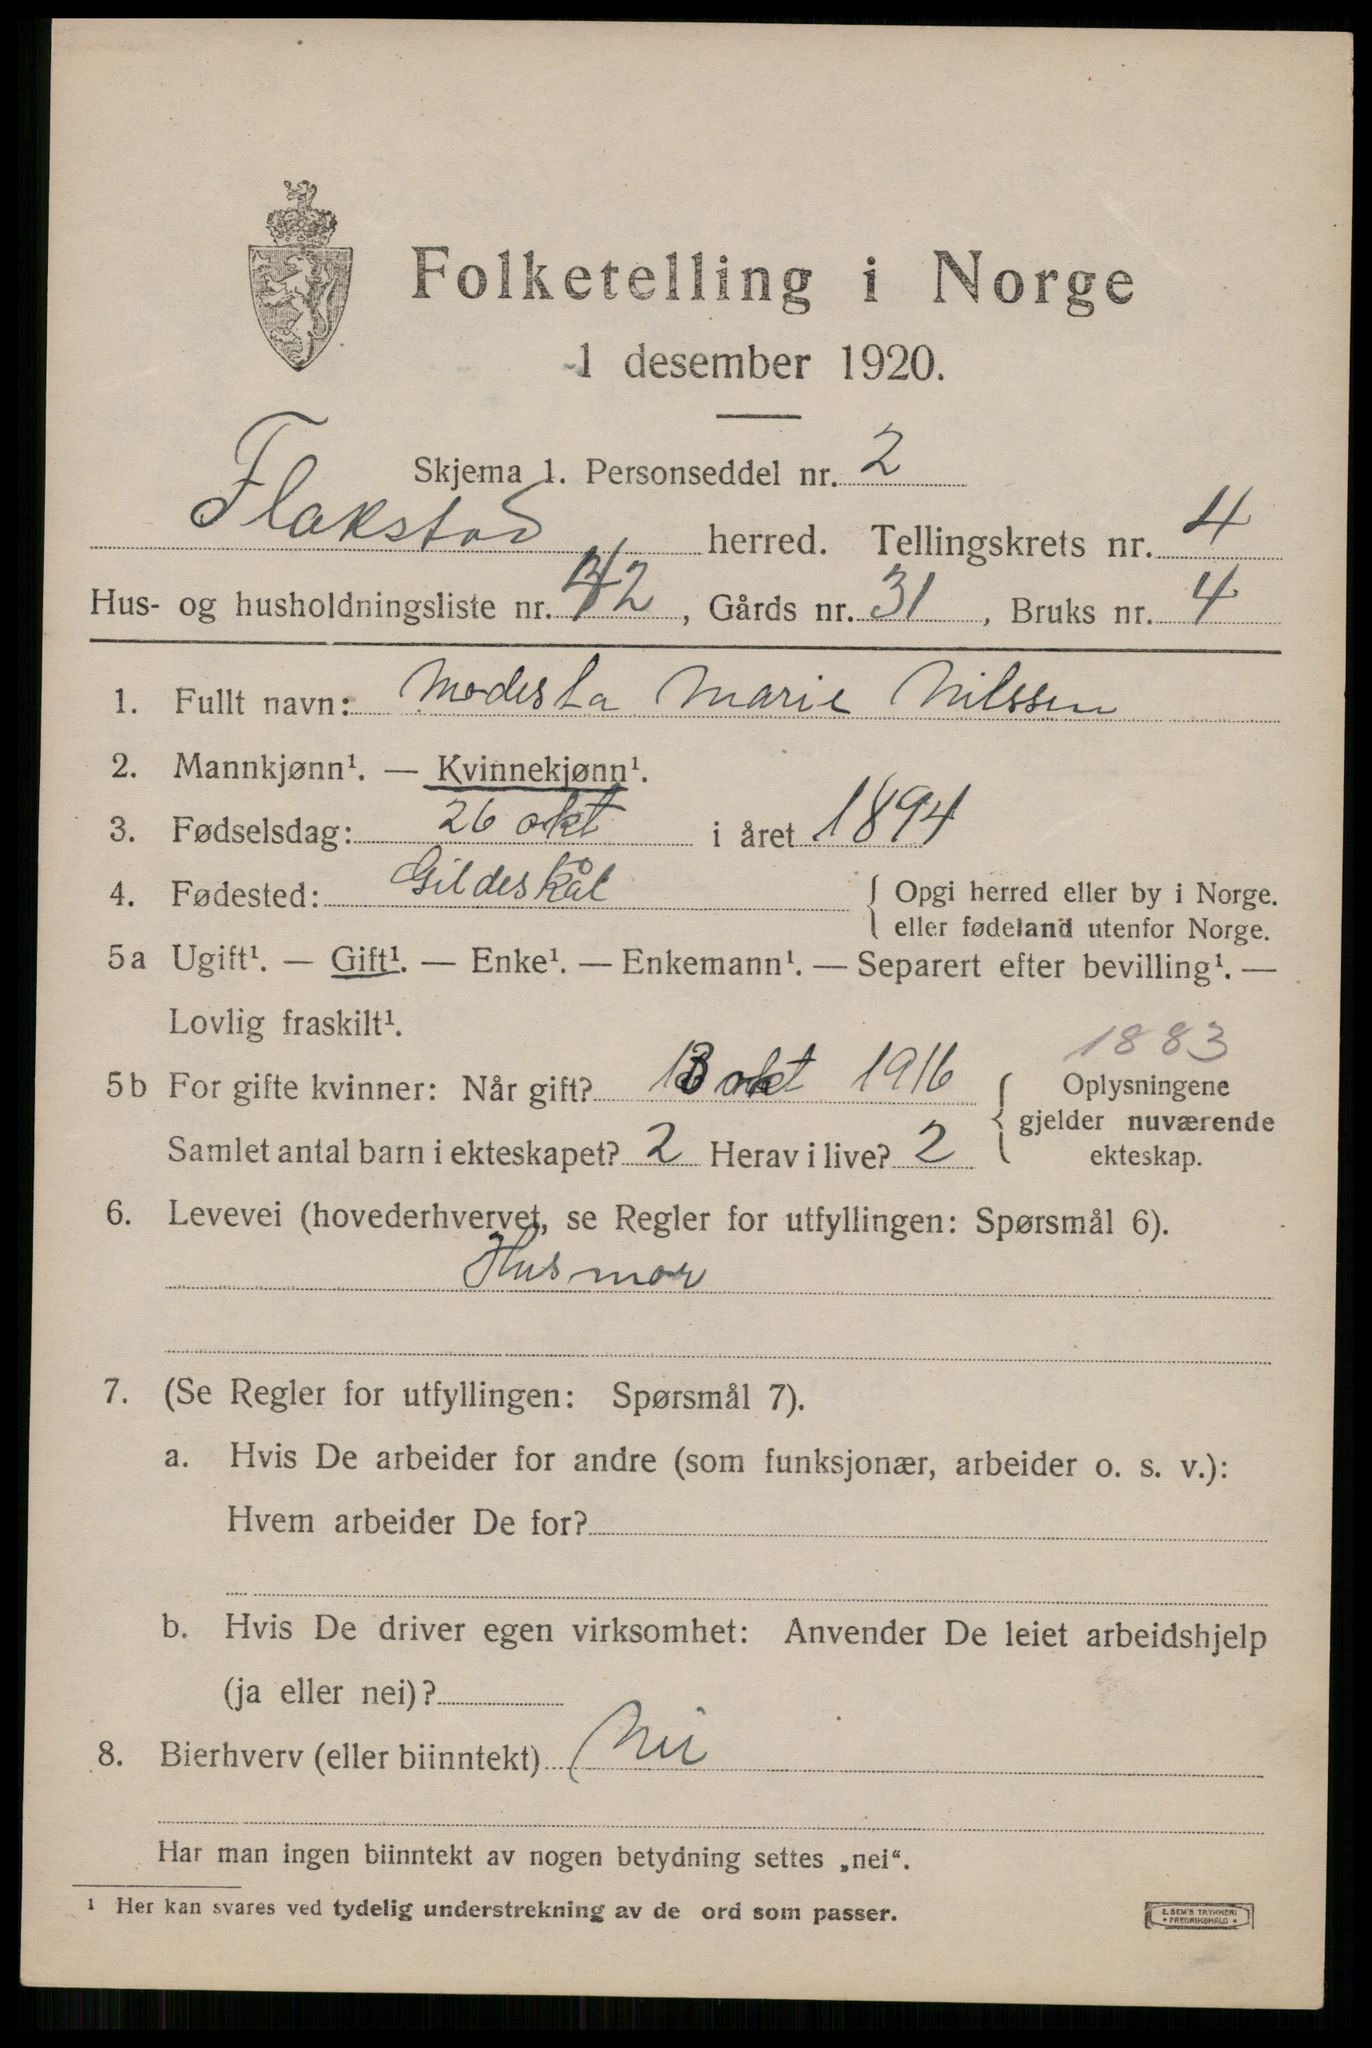 Folketelling i Norge
1 desember 1920.
Skjema 1. Personseddel nr. 2
Flakstad herred. Tellingskrets nr. 4
Hus- og husholdningsliste nr. 42, Gårds nr. 31, Bruks nr. 4
1. Fullt navn: Modesta Marie Nilssen
2. Mannkjønn¹. — Kvinnekjønn¹.
3. Fødselsdag: 26 okt i året 1894
4. Fødested: Gildeskål { Opgi herred eller by i Norge.
eller fødeland utenfor Norge.
5a Ugift¹. — Gift¹. — Enke¹. — Enkemann¹. — Separert efter bevilling¹. —
Lovlig fraskilt¹.
1883
5b For gifte kvinner: Når gift? 13 okt 1916 { Oplysningene
gjelder nuværende
Samlet antal barn i ekteskapet? 2 Herav i live? 2 ekteskap.
6. Levevei (hovederhvervet, se Regler for utfyllingen: Spørsmål 6).
Husmor
7. (Se Regler for utfyllingen: Spørsmål 7).
a. Hvis De arbeider for andre (som funksjonær, arbeider o. s. v.):
Hvem arbeider De for?
b. Hvis De driver egen virksomhet: Anvender De leiet arbeidshjelp
(ja eller nei)?
8. Bierhverv (eller biinntekt) Nei
Har man ingen biinntekt av nogen betydning settes „nei“.
¹ Her kan svares ved tydelig understrekning av de ord som passer.
E. SEM'S TRYKKERI
• FREDRIKSHALD •